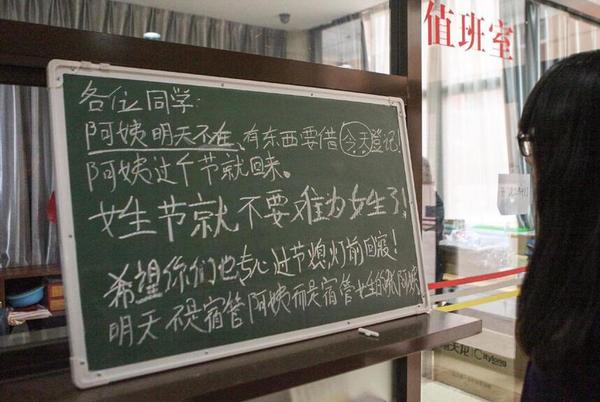 各位同学:
阿姨明天不在,有东西要借今天登记!
阿姨过个节就回来。
女生节就不要难为女生了!
希望你们也专心过节熄灯前回寝!
明天不是宿管阿姨而是宿管女生
值班室
天龙